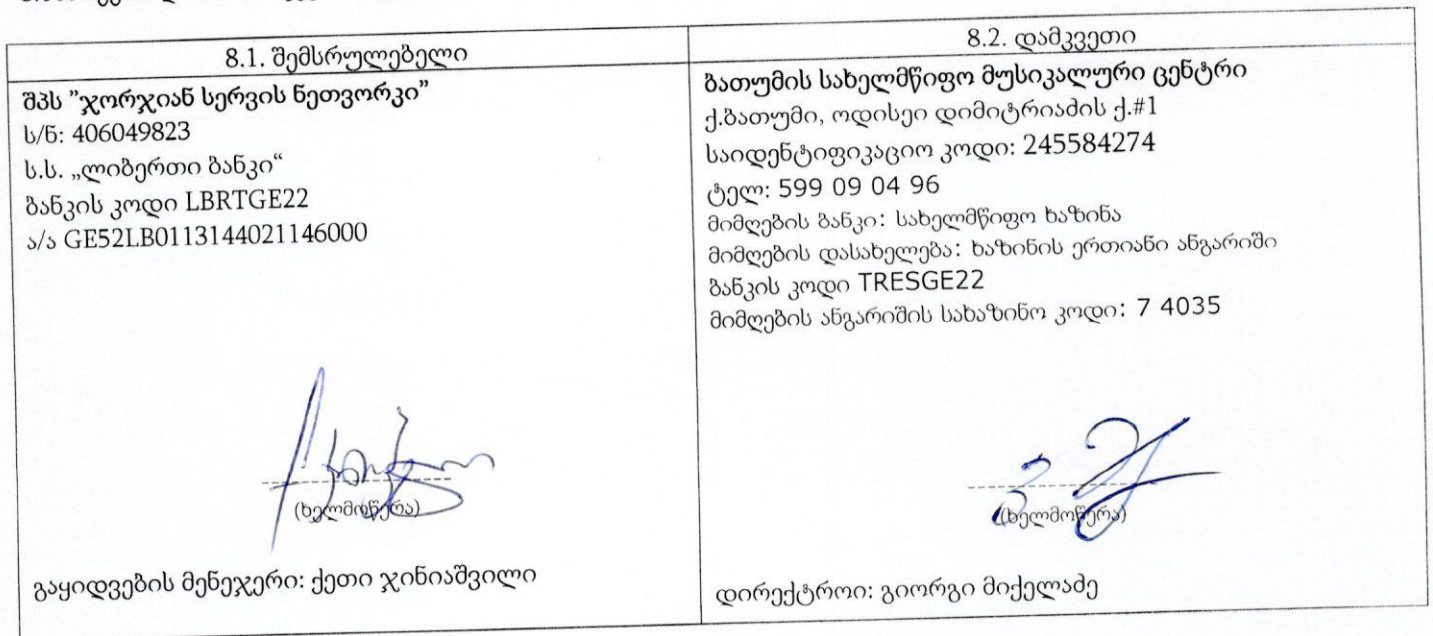 8.1. შემსრულებელი
შპს "ჯორჯიან სერვის ნეთვორკი"
ს/ნ: 406049823
ს.ს. „ლიბერთი ბანკი“
ბანკის კოდი LBRTGE22
ა/ა GE52LB0113144021146000
(ხელმოწერა)
გაყიდვების მენეჯერი: ქეთი ჯინიაშვილი
8.2. დამკვეთი
ბათუმის სახელმწიფო მუსიკალური ცენტრი
ქ.ბათუმი, ოდისეი დიმიტრიაძის ქ.#1
საიდენტიფიკაციო კოდი: 245584274
ტელ: 599 09 04 96
მიმღების ბანკი: სახელმწიფო ხაზინა
მიმღების დასახელება: ხაზინის ერთიანი ანგარიში
ბანკის კოდი TRESGE22
მიმღების ანგარიშის სახაზინო კოდი: 7 4035
(ხელმოწერა)
დირექტროი: გიორგი მიქელაძე